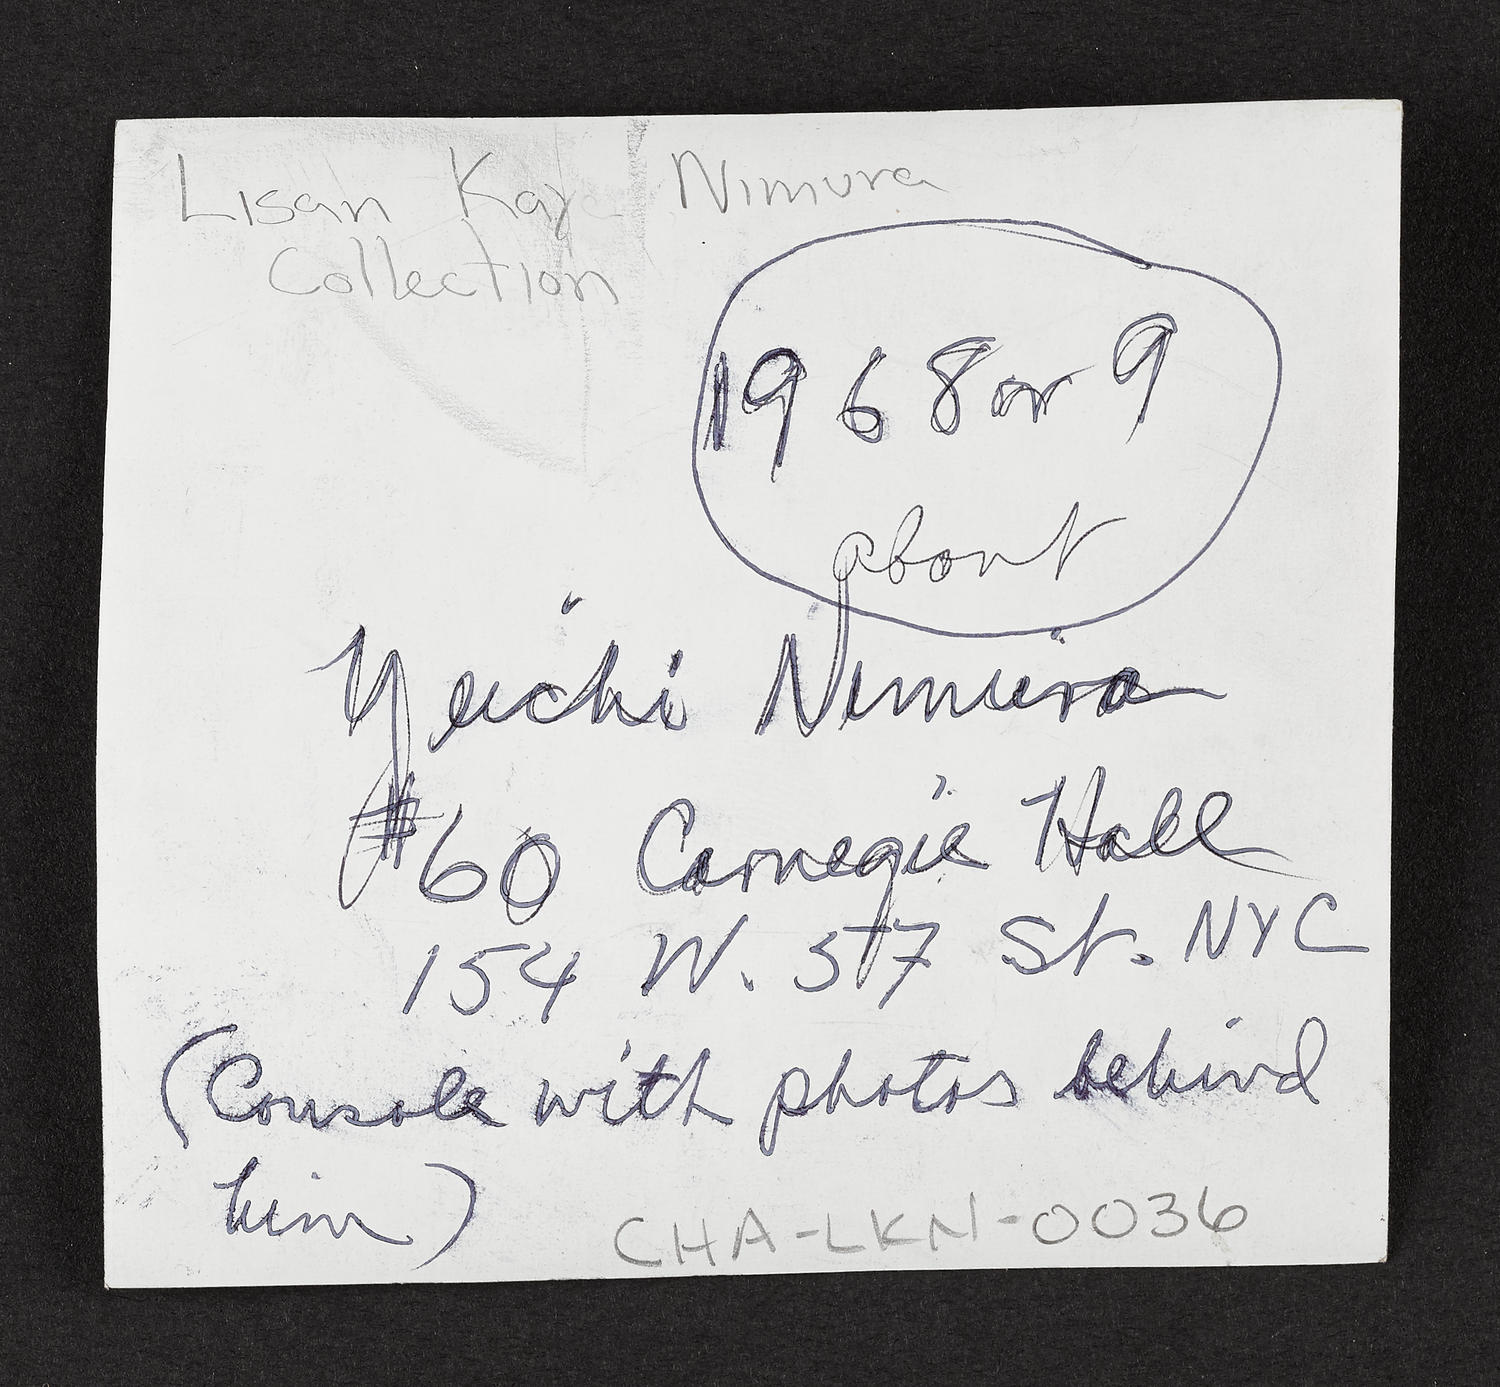 Lisan Kay Nimura
Collection
1968 or 9
about
Yeichi Nimura
#60 Carnegie Hall
154 W. 57 St. NYC
(Console with photos behind
him)
CHA-LKN-0036